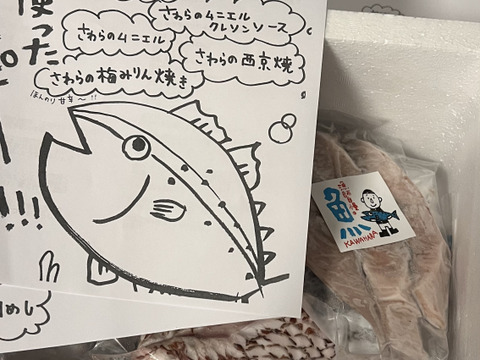 使った
さわらのムニエル
クレソンソース
さわらのムニエル
さわらの西京焼
さわらの梅みりん焼き
ほんのり甘辛〜!!
!!!
めし
魚
KAWAHARA